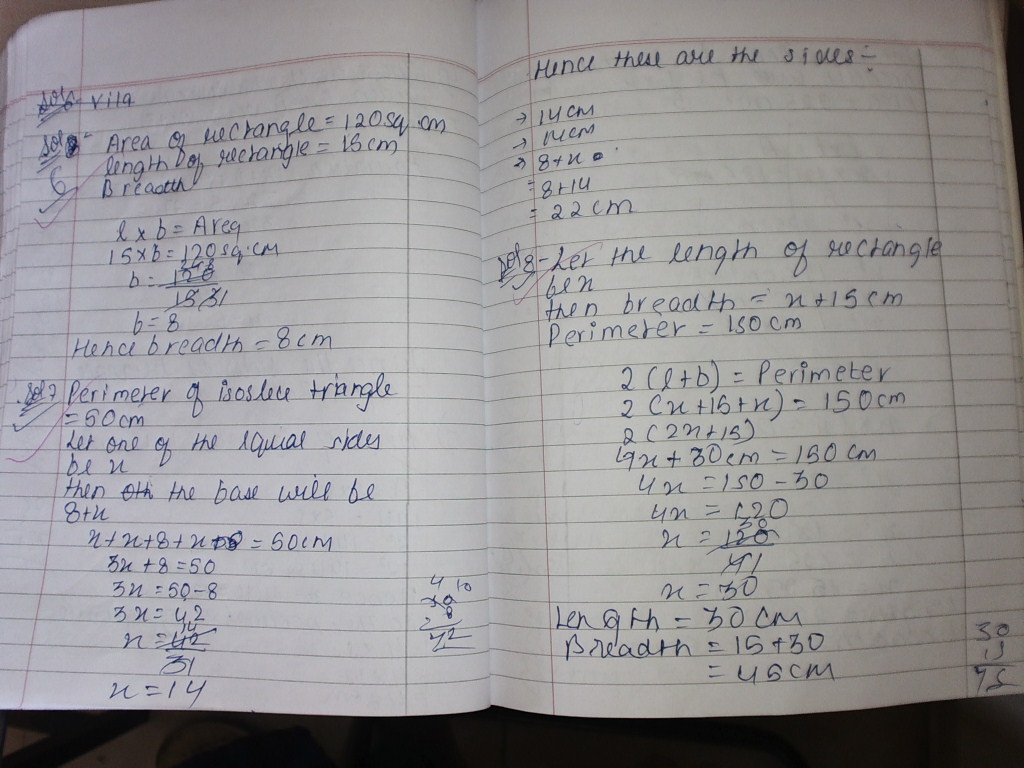 Vila
Sol - Area of rectangle = 120 sq cm
6 length of rectangle = 15 cm
Breadth
l x b = Area
15 x b = 120 sq. cm
b = 120
15 1
b = 8
Hence breadth = 8 cm
Sol 7 Perimeter of isoslece triangle
= 50 cm
Let one of the equal sides
be x
then the base will be
8+x
x + x + 8 + x = 50 cm
3x + 8 = 50
3x = 50 - 8
3x = 42
x = 42
31
x = 14
4 10
50
8
42
Hence these are the sides :-
→ 14 cm
→ 14 cm
→ 8 + x
= 8 + 14
= 22 cm
Sol 8 - Let the length of rectangle
be x
then breadth = x + 15 cm
Perimeter = 150 cm
2 (l + b) = Perimeter
2 (x + 15 + x) = 150 cm
2 (2x + 15)
4x + 30 cm = 150 cm
4x = 150 - 30
4x = 120
30
x = 120
41
x = 30
Length = 30 cm
Breadth = 15 + 30
= 45 cm
30
15
45